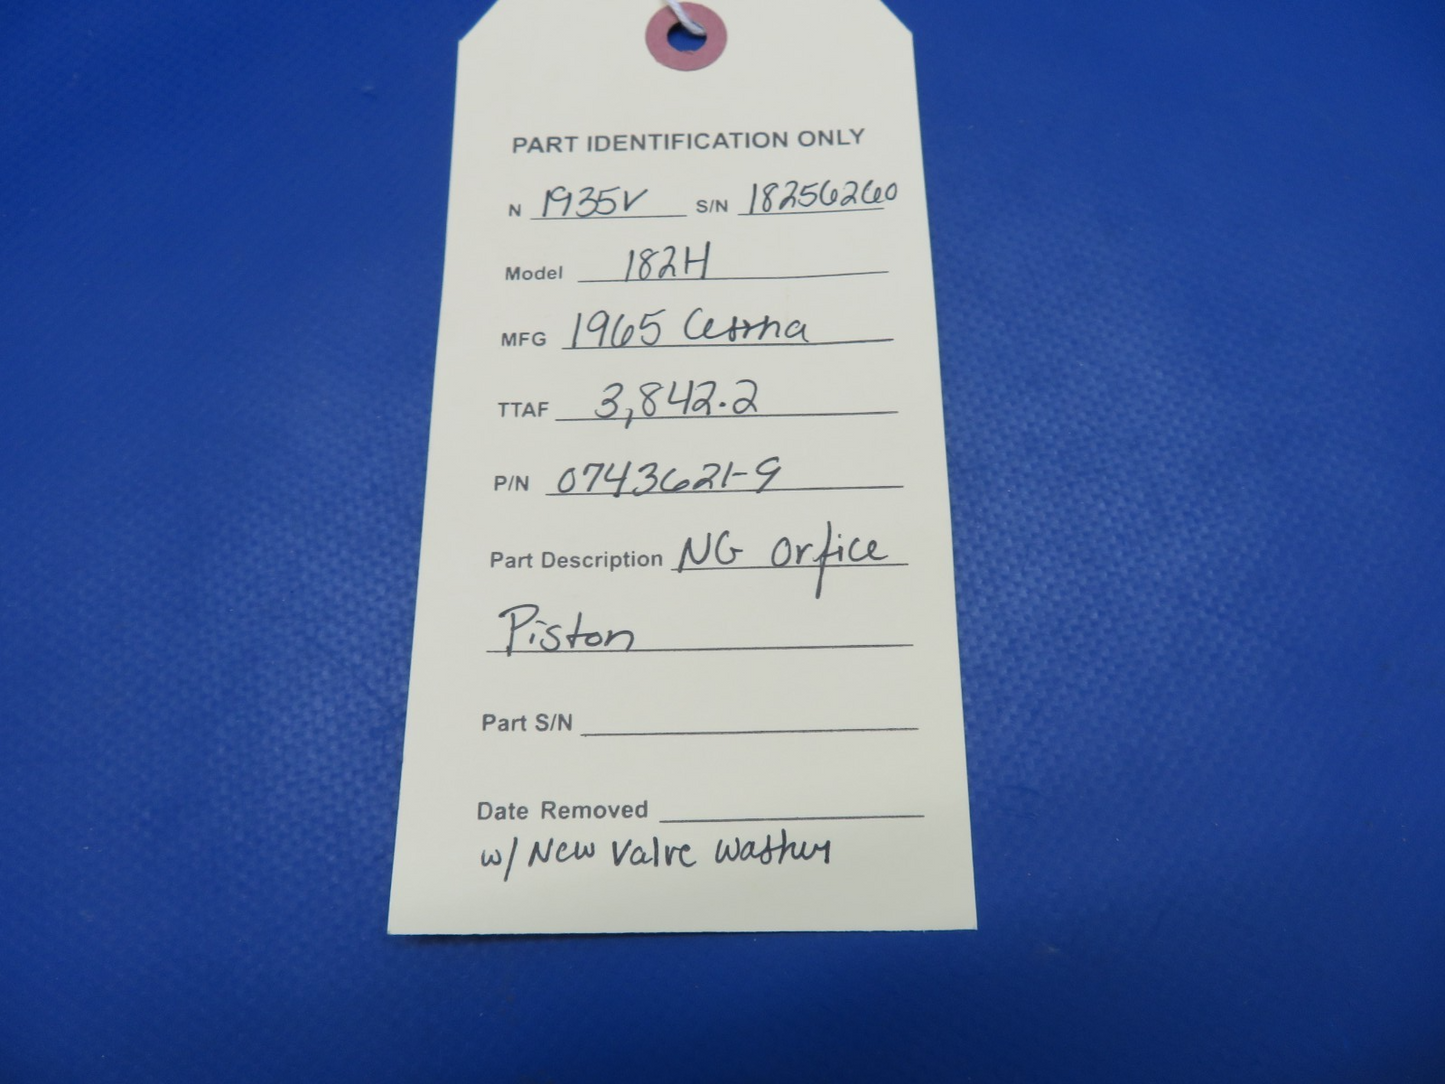 PART IDENTIFICATION ONLY
N 1935V S/N 18256260
Model 182H
MFG 1965 Cessna
TTAF 3,842.2
P/N 0743621-9
Part Description NG Orfice
Piston
Part S/N
Date Removed
w/ New Valve Washer